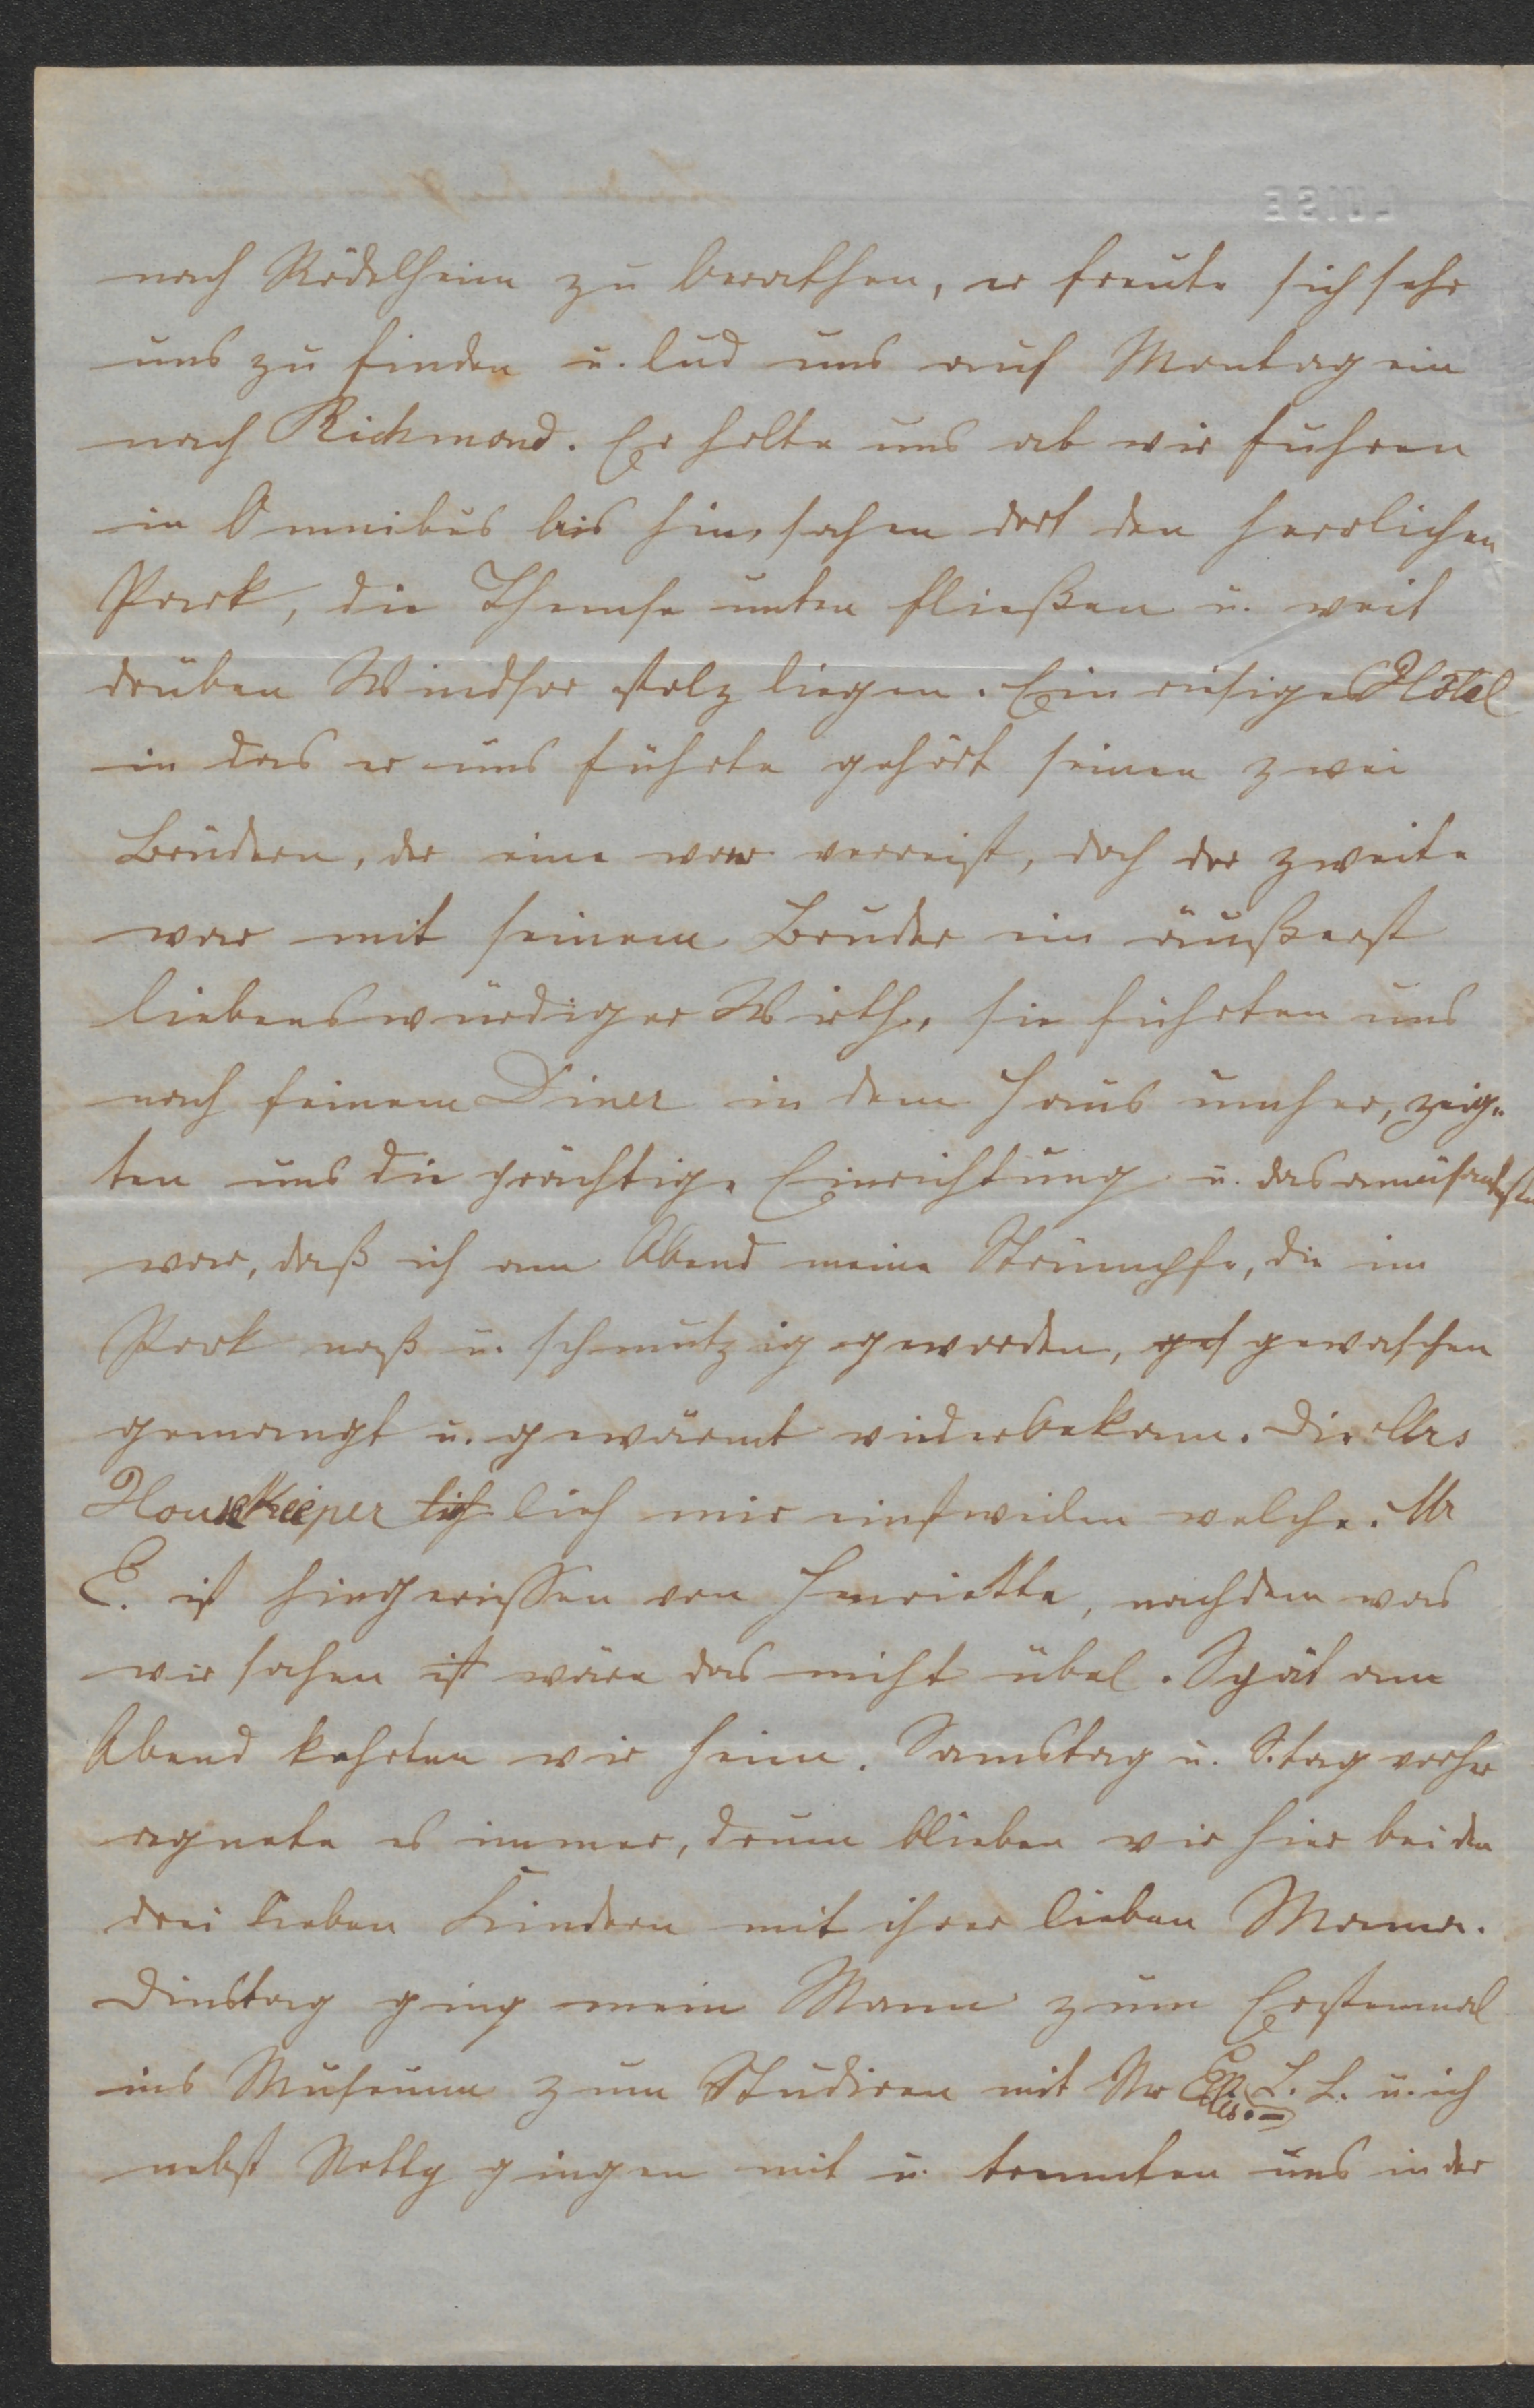 nach Rödelheim zu berathen, er freute sich sehr
uns zu finden u. lud uns auf Montag ein
nach Richmond. Er holte uns ab wir fuhren
in Omnibus bis hin, sahen dort den herrlichen
Park, die Themse unten fließen u. weit
drüben Windsor stolz liegen. Ein riesiges Hôtel
in das er uns führte gehört seinen zwei
Brüdern, der eine war verreist, doch der zweite
war mit seinem Bruder ein äußerst
liebenswürdiger Wirth, sie führten uns
nach feinem Diner in dem Haus umher, zeig-
ten uns die prächtige Einrichtung u. das amüsanteste
war, daß ich am Abend meine Strümpfe, die im
Park naß u. schmutzig geworden, ges gewaschen
gemangt u. gewärmt wiederbekam. Die Mrs
Housekeeper lieh lieh mir einstweilen welche. Mr
E. ist hingerissen von Henriette, nachdem was
wir sahen ist wäre das nicht übel. Spät am
Abend kehrten wir heim. Samstag u. S.tag vorher
regnete es immer, drum blieben wir hier bei den
drei lieben Kindern mit ihrer lieben Mama.
Dinstag ging mein Mann zum Erstenmal
ins Museum zum Studiren mit Mr Ellis. L. L. u. ich
nebst Netty gingen mit u. trennten uns in der